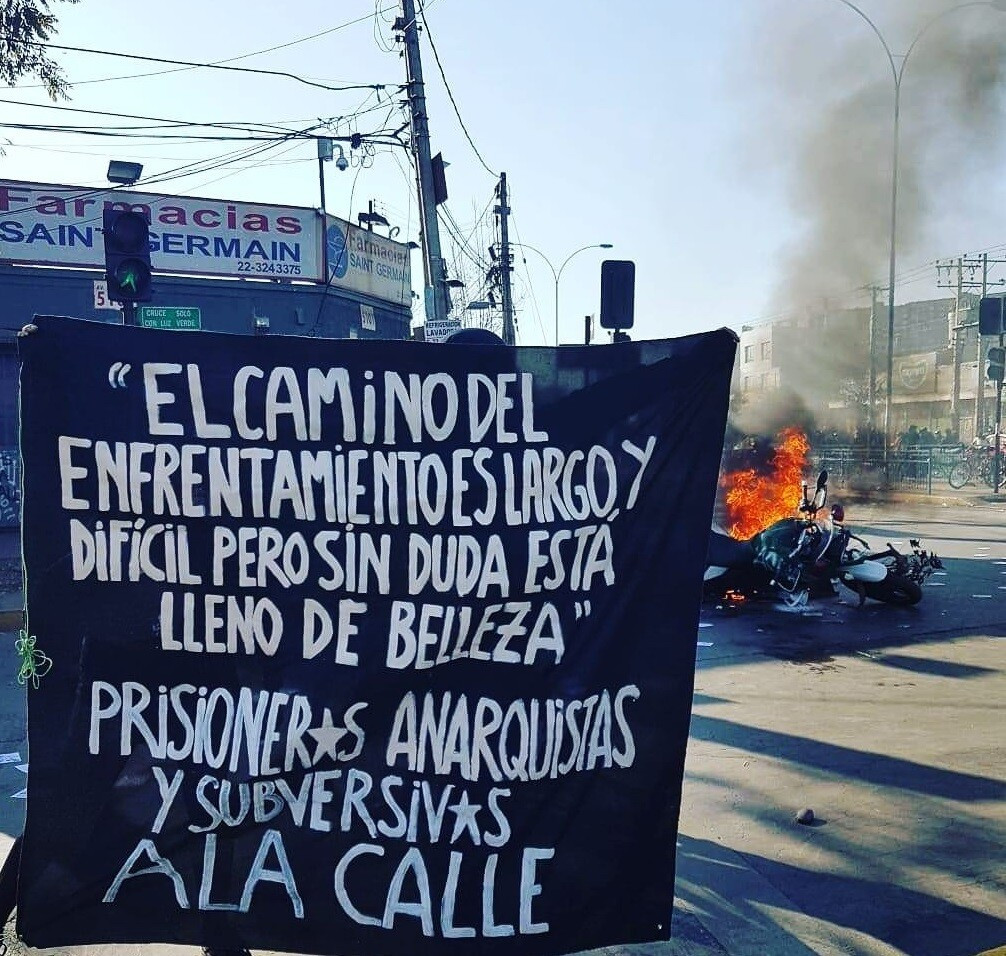 Farmacias
SAINT GERMAIN
22-3243375
Farmacias
SAINT GERMAIN
CRUCE SOLO
CON LUZ VERDE
REFRIGERACION
LAVADO
"EL CAMINO DEL
ENFRENTAMIENTO ES LARGO, Y
DIFÍCIL PERO SIN DUDA ESTÁ
LLENO DE BELLEZA"
PRISIONER★S ANARQUISTAS
Y SUBVERSIV★S
A LA CALLE